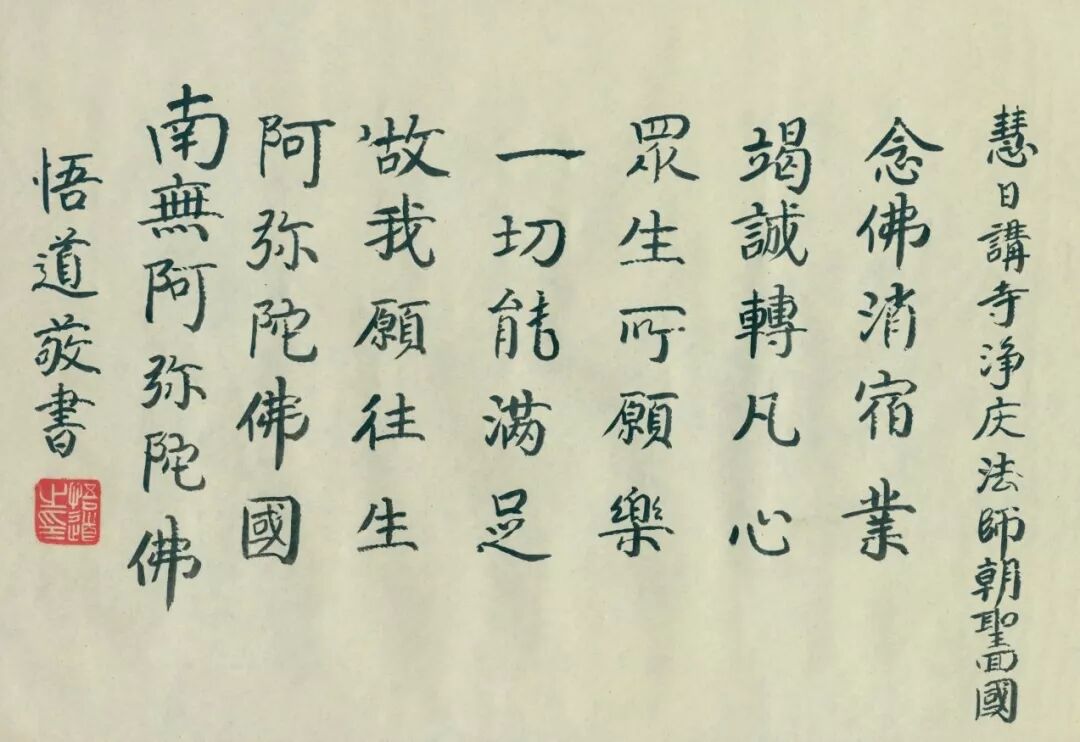 慧日講寺净庆法師朝聖囬國
念佛消宿業
竭誠轉凡心
眾生所願樂
一切能满足
做我願往生
阿弥陀佛國
南無阿弥陀佛
悟道敬書
悟道之印